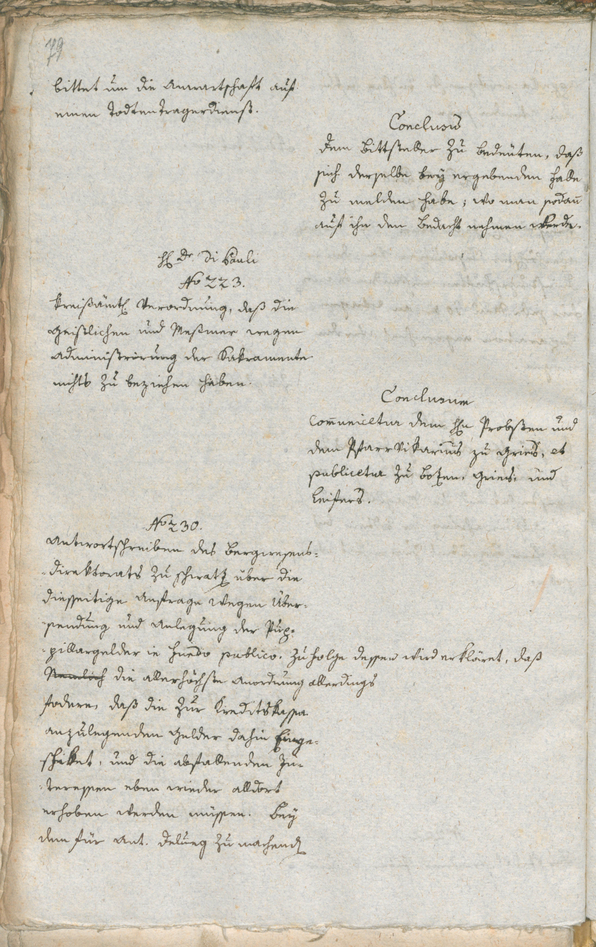 79
bittet um die Anwartschaft auf
einen Todtentragerdienst.
Conclusum
dem Bittsteller zu bedeuten, daß
sich derselbe bey ergebenden
zu melden habe; wo man sodann
auf ihn den Bedacht nehmen werde.
H. Dr. Di Pauli
No 223.
Kreißämtl. Verordnung, daß die
Geistlichen und Meßmer wegen
Administrirung der Sakramente
nichts zu beziehen haben.
Conclusum
Communicetur dem Hn Probsten und
dem Pfarrvikarius zu Gries, et
publicetur zu Bozen, Gries, und
Leifers.
No 230.
Antwortschreiben des Bergwesens-
direktorats zu Schwatz über die
diesseitige Anfrage wegen Über-
sendung und Anlegung der Pup-
pillargelder in fundo publico. Zufolge dessen wird erkläret, daß
die allerhöchste Anordnung allerdings
fodere, daß die zur Kreditskassa
anzulegenden Gelder dahin einge-
schikket, und die abfallenden In-
teressen eben wieder alldort
erhoben werden müssen. Bey
dem für Ant. Delueg zu machend